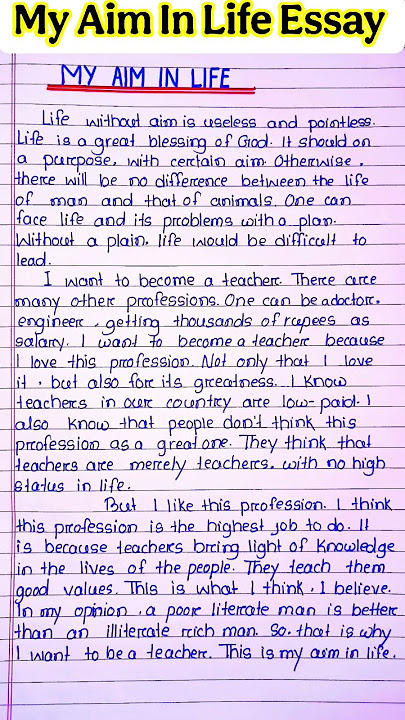 My Aim In Life Essay
MY AIM IN LIFE
Life without aim is useless and pointless.
Life is a great blessing of God. It should on
a purpose, with certain aim. Otherwise,
there will be no difference between the life
of man and that of animals. One can
face life and its problems with a plan.
Without a plain, life would be difficult to
lead.
I want to become a teacher. There are
many other professions. One can be a doctor,
engineer, getting thousands of rupees as
salary. I want to become a teacher because
I love this profession. Not only that I love
it, but also for its greatness. I Know
teachers in our country are low-paid. I
also know that people don't think this
profession as a great one. They think that
teachers are merely teachers, with no high
status in life.
But I like this profession. I think
this profession is the highest job to do. It
is because teachers bring light of Knowledge
in the lives of the people. They teach them
good values. This is what I think, I believe.
In my opinion, a poor literate man is better
than an illiterate rich man. So, that is why
I want to be a teacher. This is my aim in life.